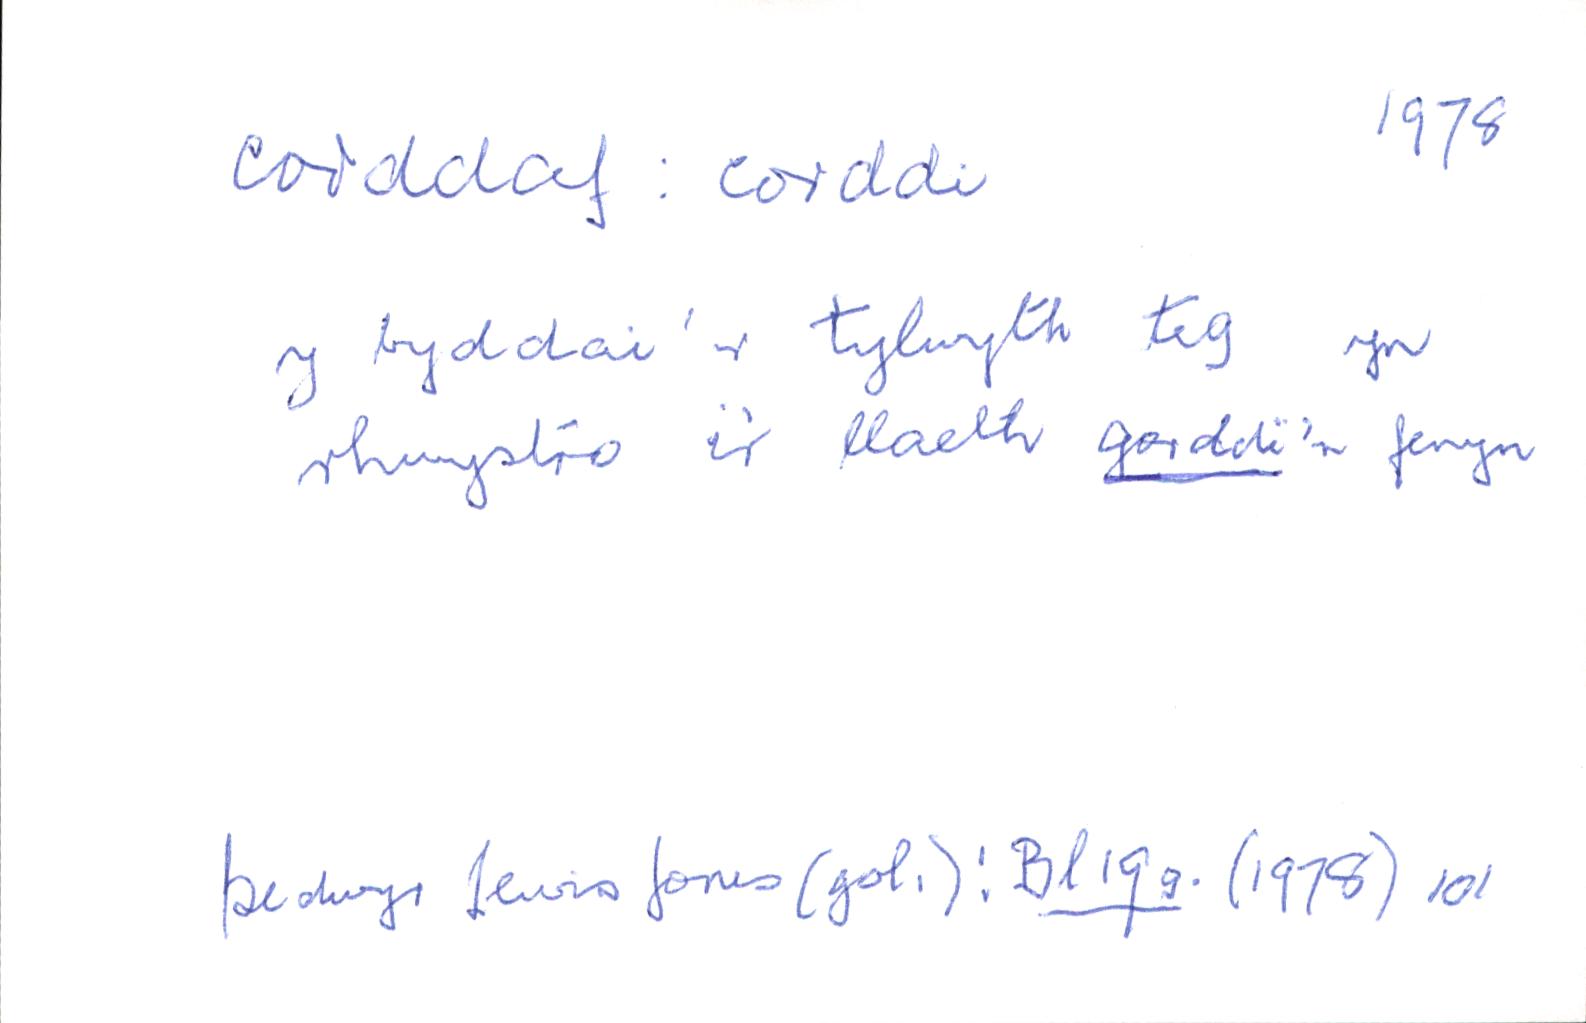 1978
corddaf : corddi
y byddai'r tylwyth teg yn
rhwystro i'r llaeth gorddi'n fenyn
Bedwyr Lewis Jones (gol.): Bl 19g. (1978) 101